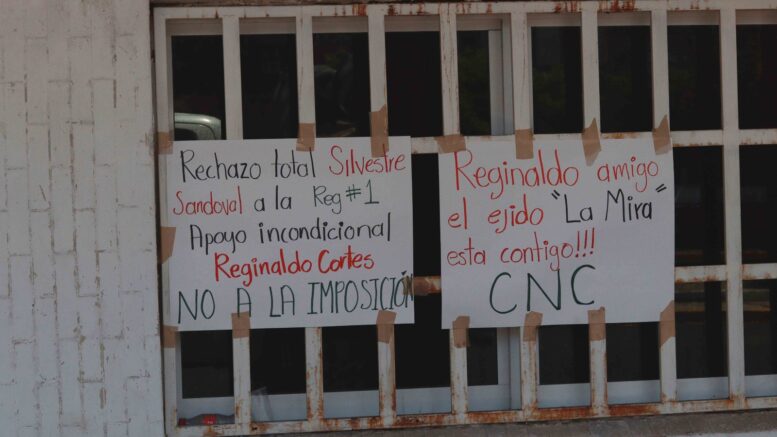 Rechazo total Silvestre
Sandoval a la Reg #1
Apoyo incondicional
Reginaldo Cortes
NO A LA IMPOSICIÓN
Reginaldo amigo
el ejido "La Mira"
esta contigo!!!
CNC